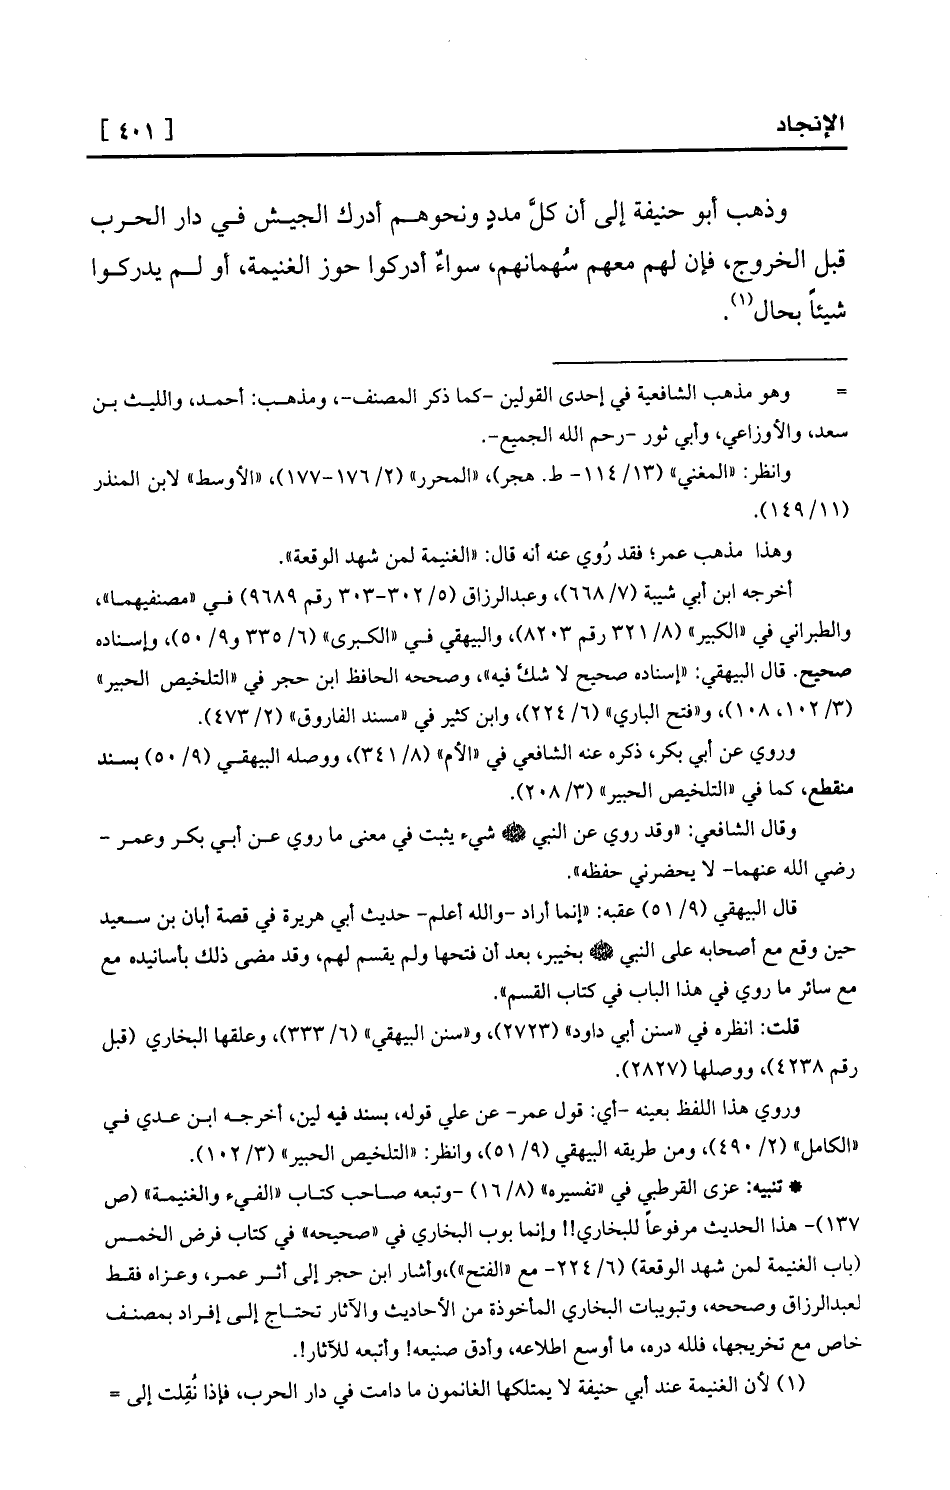 الإنجاد
[ ٤٠١ ]
وذهب أبو حنيفة إلى أن كلَّ مددٍ ونحوهم أدرك الجيش في دار الحرب
قبل الخروج، فإن لهم معهم سُهمانهم، سواءٌ أدركوا حوز الغنيمة، أو لم يدركوا
شيئاً بحال(١).
= وهو مذهب الشافعية في إحدى القولين -كما ذكر المصنف-، ومذهب: أحمد، والليث بن
سعد، والأوزاعي، وأبي ثور -رحم الله الجميع-.
وانظر: «المغني» (١٣/ ١١٤- ط. هجر)، «المحرر» (٢/ ١٧٦-١٧٧)، «الأوسط» لابن المنذر
(١١/ ١٤٩).
وهذا مذهب عمر؛ فقد رُوي عنه أنه قال: «الغنيمة لمن شهد الوقعة».
أخرجه ابن أبي شيبة (٧/ ٦٦٨)، وعبدالرزاق (٥/ ٣٠٢-٣٠٣ رقم ٩٦٨٩) في «مصنفيهما»،
والطبراني في «الكبير» (٨/ ٣٢١ رقم ٨٢٠٣)، والبيهقي في «الكبرى» (٦/ ٣٣٥ و٩/ ٥٠)، وإسناده
صحيح. قال البيهقي: «إسناده صحيح لا شك فيه»، وصححه الحافظ ابن حجر في «التلخيص الحبير»
(٣/ ١٠٢، ١٠٨)، و«فتح الباري» (٦/ ٢٢٤)، وابن كثير في «مسند الفاروق» (٢/ ٤٧٣).
وروي عن أبي بكر، ذكره عنه الشافعي في «الأم» (٨/ ٣٤١)، ووصله البيهقي (٩/ ٥٠) بسند
منقطع، كما في «التلخيص الحبير» (٣/ ٢٠٨).
وقال الشافعي: «وقد روي عن النبي ﷺ شيء يثبت في معنى ما روي عن أبي بكر وعمر -
رضي الله عنهما- لا يحضرني حفظه».
قال البيهقي (٩/ ٥١) عقبه: «إنما أراد -والله أعلم- حديث أبي هريرة في قصة أبان بن سعيد
حين وقع مع أصحابه على النبي ﷺ بخيبر، بعد أن فتحها ولم يقسم لهم، وقد مضى ذلك بأسانيده مع
مع سائر ما روي في هذا الباب في كتاب القسم».
قلت: انظره في «سنن أبي داود» (٢٧٢٣)، و«سنن البيهقي» (٦/ ٣٣٣)، وعلقها البخاري (قبل
رقم ٤٢٣٨)، ووصلها (٢٨٢٧).
وروي هذا اللفظ بعينه -أي: قول عمر- عن علي قوله، بسند فيه لين، أخرجه ابن عدي في
«الكامل» (٢/ ٤٩٠)، ومن طريقه البيهقي (٩/ ٥١)، وانظر: «التلخيص الحبير» (٣/ ١٠٢).
* تنبيه: عزى القرطبي في «تفسيره» (٨/ ١٦) -وتبعه صاحب كتاب «الفيء والغنيمة» (ص
١٣٧)- هذا الحديث مرفوعاً للبخاري!! وإنما بوب البخاري في «صحيحه» في كتاب فرض الخمس
(باب الغنيمة لمن شهد الوقعة) (٦/ ٢٢٤- مع «الفتح»)،وأشار ابن حجر إلى أثر عمر، وعزاه فقط
لعبدالرزاق وصححه، وتبويبات البخاري المأخوذة من الأحاديث والآثار تحتاج إلى إفراد بمصنف
خاص مع تخريجها، فلله دره، ما أوسع اطلاعه، وأدق صنيعه! وأتبعه للآثار!.
(١) لأن الغنيمة عند أبي حنيفة لا يمتلكها الغانمون ما دامت في دار الحرب، فإذا نُقِلت إلى =